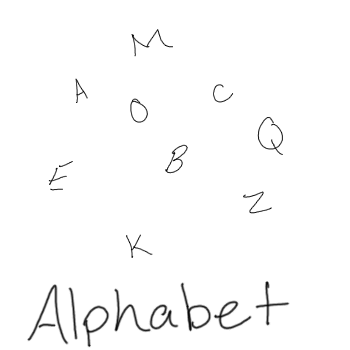 M
A O C
Q
E B
Z
K
Alphabet